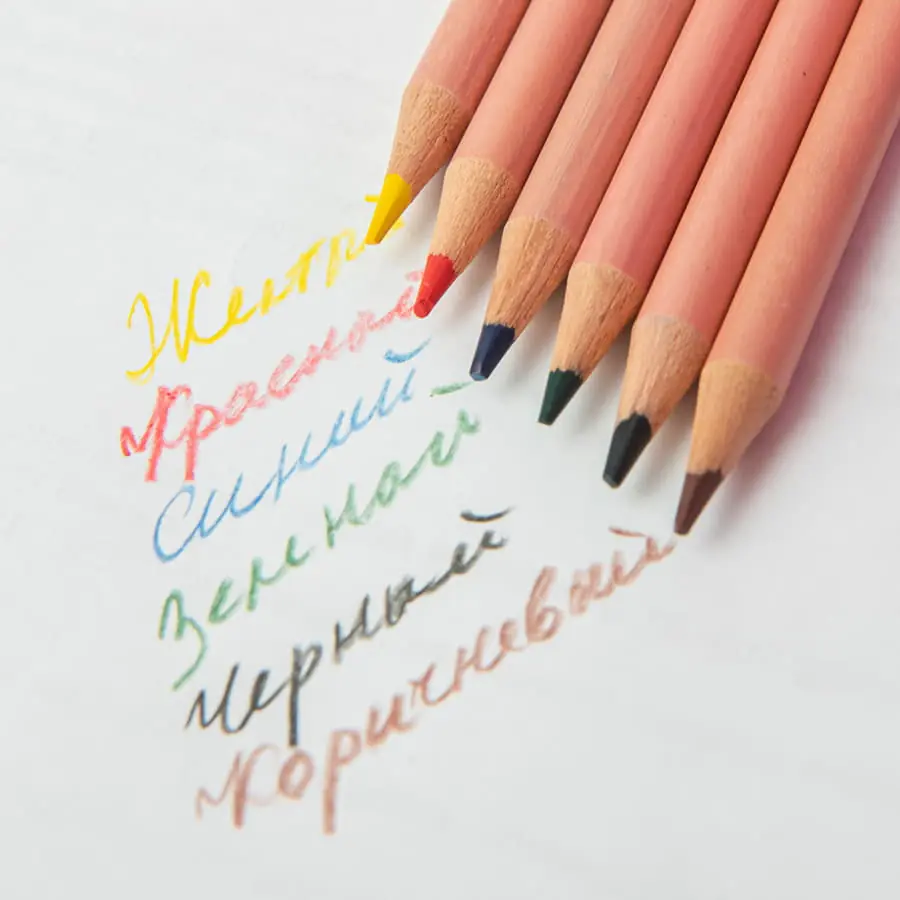 Желтый
Красный
Синий
Зеленый
Черный
Коричневый